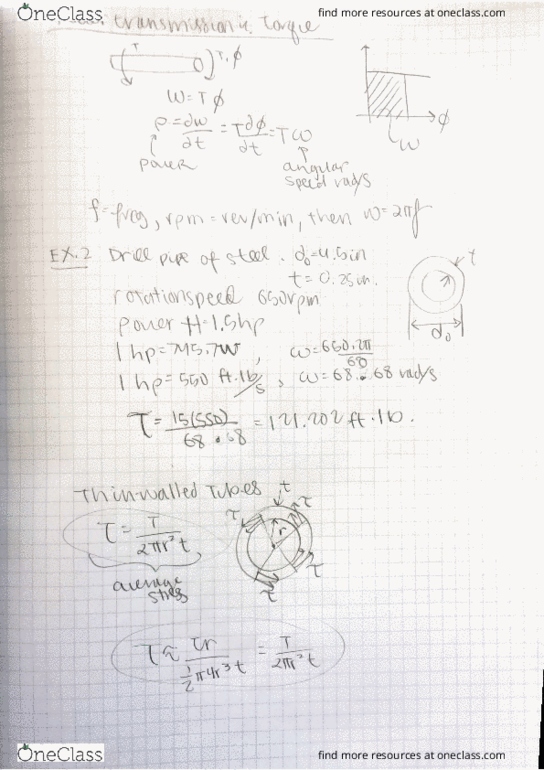 OneClass
find more resources at oneclass.com
transmission & Torque
T
T, φ
W = Tφ
P = dw/dt = T dφ/dt = Tω
φ
W
power
angular
speed rad/s
f = freq, rpm = rev/min, then w = 2πf
EX.2 Drill pipe of steel. d₀=4.5in
t = 0.25in.
t
rotation speed 650rpm
d₀
1hp = 745.7W, ω = 650.2π/60
1hp = 550 ft.lb/s, ω = 68.68 rad/s
T = 15(550)/68.68 = 121.202 ft.lb.
Thin-walled Tubes
t
τ
τ
r
τ = T/2πr²t
τ
average
stress
τ
τ ≈ Tr/½π4r³t = T/2πr²t
OneClass
find more resources at oneclass.com